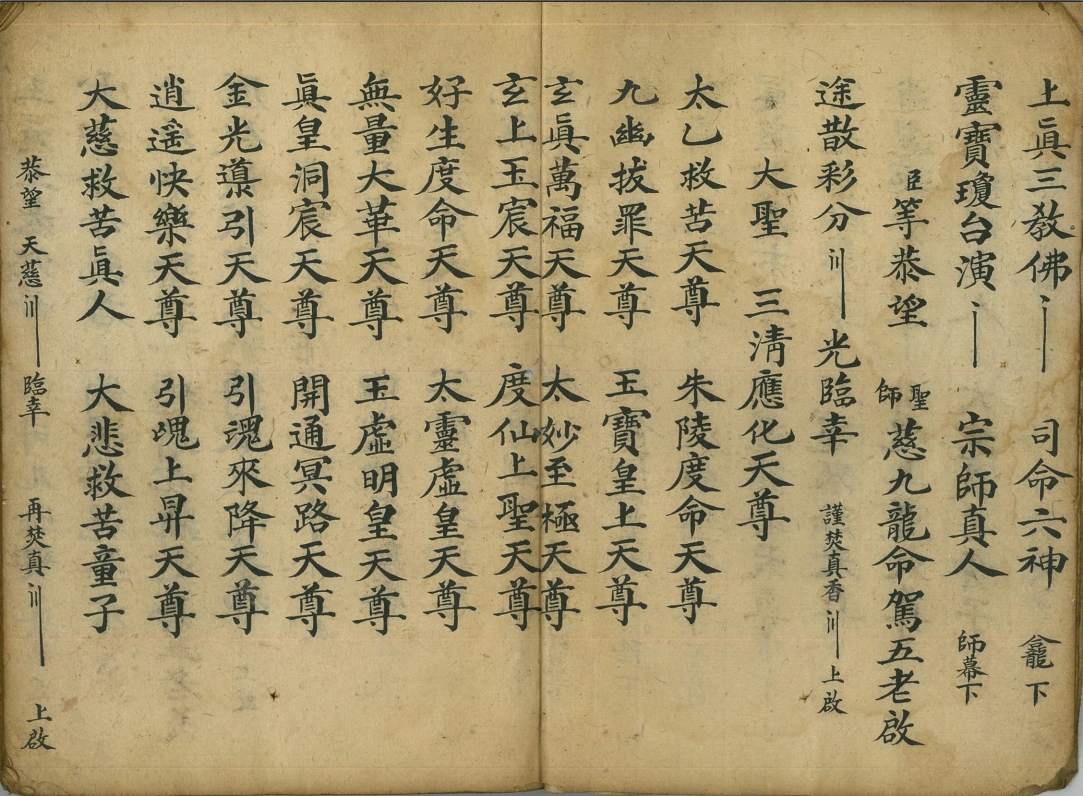 上眞三教佛 司命六神 龕下
靈寶瓊台演 宗師真人 師幕下
臣等恭望 聖師慈九龍命駕五老啟
途散彩分 光臨幸 謹焚真香 上啟
大聖 三淸應化天尊
太乙救苦天尊 朱陵度命天尊
九幽拔罪天尊 玉寶皇上天尊
玄眞萬福天尊 太妙至極天尊
玄上玉宸天尊 度仙上聖天尊
好生度命天尊 太靈虛皇天尊
無量大華天尊 玉虛明皇天尊
眞皇洞宸天尊 開通冥路天尊
金光導引天尊 引魂來降天尊
逍遥快樂天尊 引魂上昇天尊
大慈救苦眞人 大悲救苦童子
恭望 天慈 臨幸 再焚真 上啟